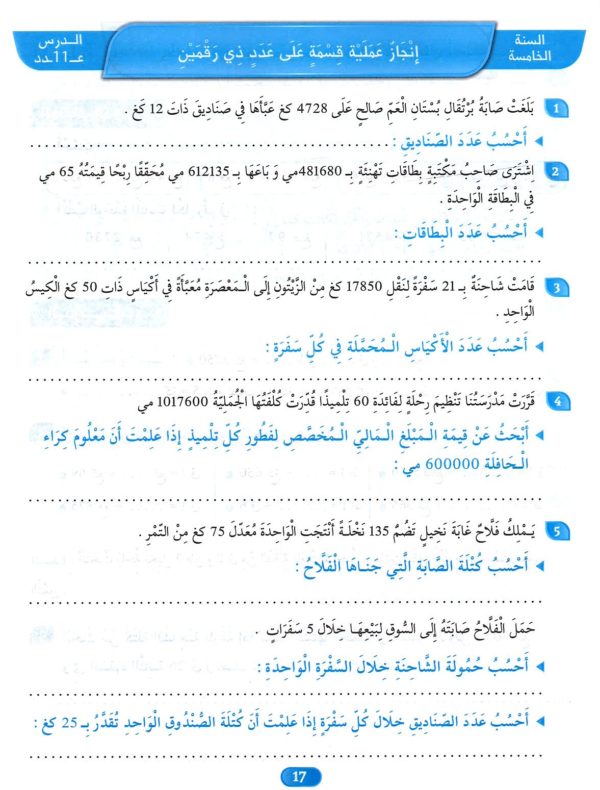 السنة
الخامسة
إِنْجَازُ عَمَلِيَّةِ قِسْمَةٍ عَلَى عَدَدٍ ذِي رَقْمَيْنِ
الـدرس
عــ11ـدد
1 بَلَغَتْ صَابَةُ بُرْتُقَالِ بُسْتَانِ الْعَمِّ صَالِحٍ عَلَى 4728 كغ عَبَّأَهَا فِي صَنَادِيقَ ذَاتَ 12 كَغ .
◀ أَحْسُبُ عَدَدَ الصَّنَادِيقِ : ........................................
2 اِشْتَرَى صَاحِبُ مَكْتَبَةٍ بِطَاقَاتِ تَهْنِئَةٍ بِـ 481680مي وَ بَاعَهَا بِـ 612135 مي مُحَقِّقًا رِبْحًا قِيمَتُهُ 65 مي
فِي الْبِطَاقَةِ الْوَاحِدَةِ .
◀ أَحْسُبُ عَدَدَ الْبِطَاقَاتِ :
........................................
3 قَامَتْ شَاحِنَةٌ بِـ 21 سَفْرَةً لِنَقْلِ 17850 كغ مِنْ الزَّيْتُونِ إِلَى الْـمَعْصَرَةِ مُعَبَّأَةً فِي أَكْيَاسٍ ذَاتِ 50 كغ الْكِيسُ
الْوَاحِدِ .
◀ أَحْسُبُ عَدَدَ الْأَكْيَاسِ الْـمُحَمَّلَةِ فِي كُلِّ سَفَرَةٍ :
........................................
4 قَرَّرَتْ مَدْرَسَتُنَا تَنْظِيمَ رِحْلَةٍ لِفَائِدَةِ 60 تِلْمِيذًا قُدِّرَتْ كُلْفَتُهَا الْجُمَلِيَّةُ 1017600 مي
◀ أَبْحَثُ عَنْ قِيمَةِ الْـمَبْلَغِ الْـمَالِيِّ الْـمُخَصَّصِ لِفَطُورِ كُلِّ تِلْمِيذٍ إِذَا عَلِمْتَ أَنَ مَعْلُومَ كِرَاءِ
الْـحَافِلَةِ 600000 مي :
........................................
5 يَـمْلِكُ فَلَّاحٌ غَابَةَ نَخِيلٍ تَضُمُّ 135 نَخْلَـةً أَنْتَجَتِ الْوَاحِدَةُ مُعَدَّلَ 75 كغ مِنْ التَّمْرِ .
◀ أَحْسُبُ كُتْلَةَ الصَّابَةِ الَّتِي جَنَـاهَا الْفَلَّاحُ :
........................................
حَمَلَ الْفَلَّاحُ صَابَتَهُ إِلَى السُّوقِ لِبَيْعِهَـا خِلَالَ 5 سَفَرَاتٍ .
◀ أَحْسُبُ حُمُولَةَ الشَّاحِنَةِ خِلَالَ السَّفْرَةِ الْوَاحِدَةِ :
........................................
◀ أَحْسُبُ عَدَدَ الصَّنَادِيقِ خِلَالَ كُلِّ سَفْرَةٍ إِذَا عَلِمْتَ أَنَ كُتْلَةَ الصُّنْدُوقِ الْوَاحِدِ تُقَدَّرُ بِـ 25 كغ :
........................................
17